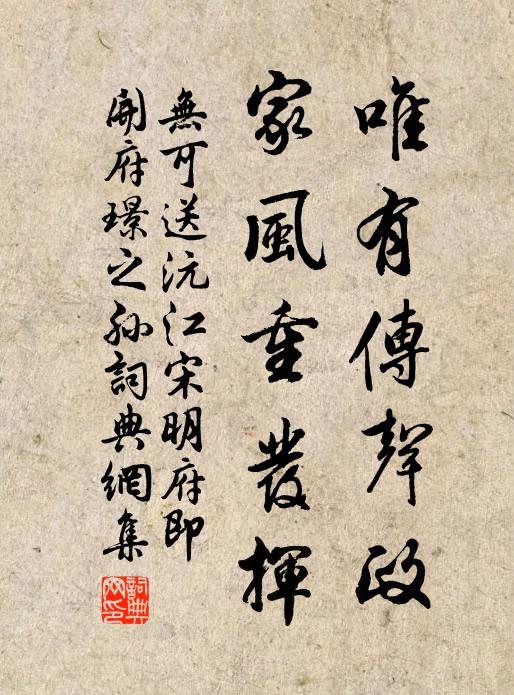 唯有傳聲政
家風重發揮
無可送沅江宋明府即
開府璟之孫詞典網集
詞典網印